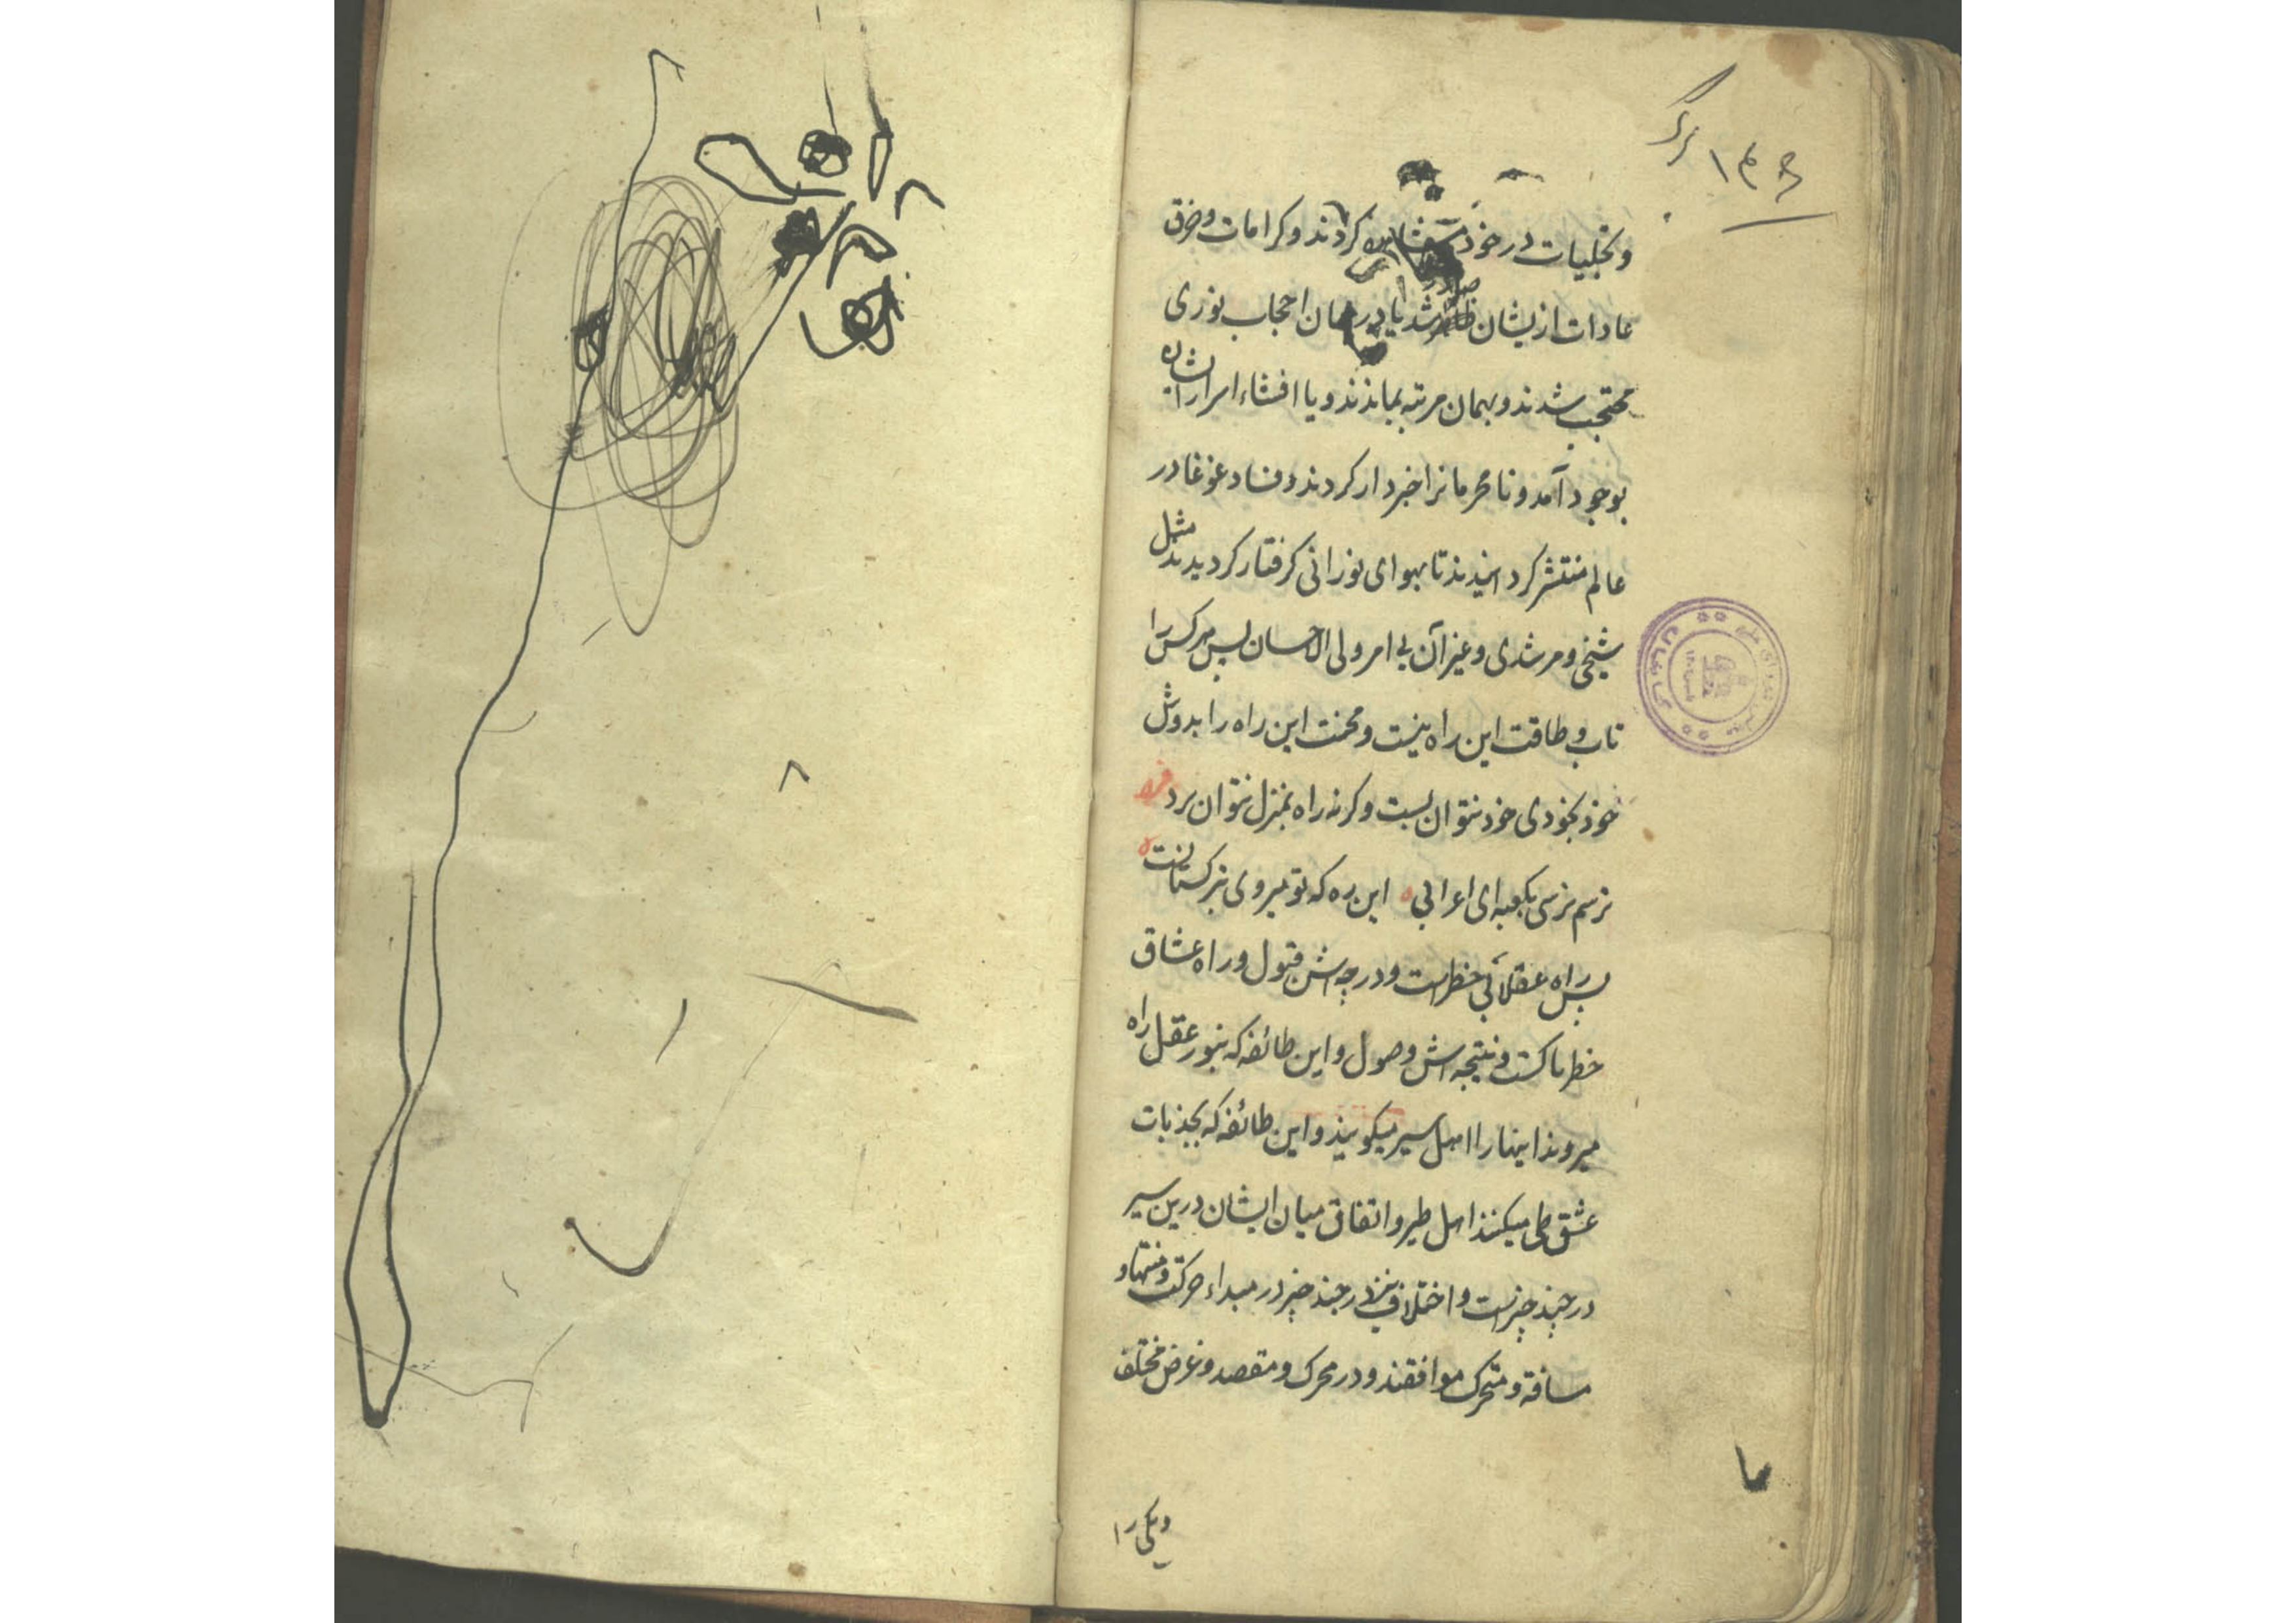 ۱۴۶ برگ
و تجلیات در خود مشاهده کردند و کرامات و خرق
عادات ازیشان ظاهر شد یا در همان احجاب نوری
محتجب شدند و بهمان مرتبه بماندند و یا افشاء اسرار ازیشان
بوجود آمد و نامحرمانرا خبردار کردند و فساد و غوغا در
عالم منتشر کردانیدند تا بهوای نورانی کرفتار کردیدند مثل
شیخی و مرشدی و غیر آن بی امر ولی الاحسان پس هرکس را
تاب و طاقت این راه نیست و محنت این راه را بدوش
خود بیخودی خود نتوان بست و کرنه راه بمنزل نتوان برد فرد
ترسم نرسی بکعبه ای اعرابی ه این ره که تو میروی بترکستانست ه
پس راه عقلا بی خطرست و درجه اش قبول و راه عشاق
خطرناکست و نتیجه اش وصول و این طائفه که بنور عقل راه
میروند اینها را اهل سیر میکویند و این طائفه که بجذبات
عشق طی میکنند اهل طیر و اتفاق میان ایشان درین سیر
در چند چیزست و اختلاف نیز در چند چیز در مبداء حرکت و منتها و
مسافة و متحرک موافقند و در محرک و مقصد و غرض مختلف
ویکی را